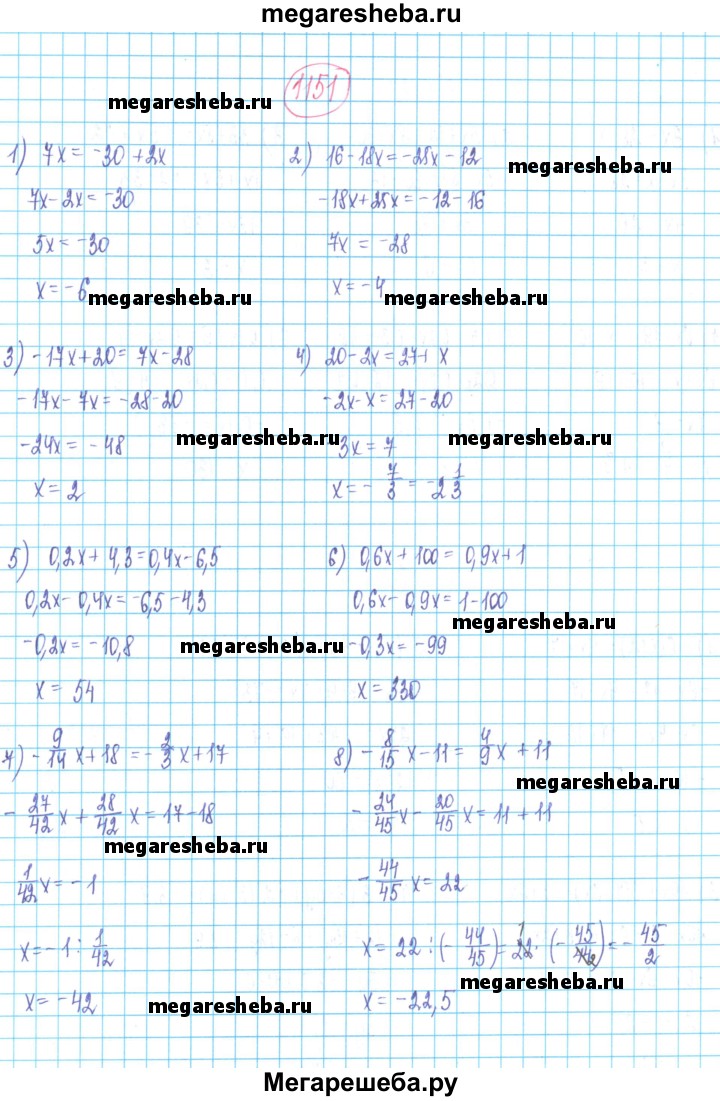 megaresheba.ru
1151
megaresheba.ru
1) 7x = -30 + 2x
7x - 2x = -30
5x = -30
x = -6
megaresheba.ru
2) 16 - 18x = -25x - 12
megaresheba.ru
-18x + 25x = -12 - 16
7x = -28
x = -4
megaresheba.ru
3) -17x + 20 = 7x - 28
-17x - 7x = -28 - 20
-24x = -48
megaresheba.ru
x = 2
4) 20 - 2x = 27 + x
-2x - x = 27 - 20
3x = 7
megaresheba.ru
x = -7/3 = -2 1/3
5) 0,2x + 4,3 = 0,4x - 6,5
0,2x - 0,4x = -6,5 - 4,3
-0,2x = -10,8
megaresheba.ru
x = 54
6) 0,6x + 100 = 0,9x + 1
0,6x - 0,9x = 1 - 100
megaresheba.ru
-0,3x = -99
x = 330
7) -9/14 x + 18 = -2/3 x + 17
-27/42 x + 28/42 x = 17 - 18
megaresheba.ru
1/42 x = -1
x = -1 : 1/42
x = -42
megaresheba.ru
8) -8/15 x - 11 = 4/9 x + 11
megaresheba.ru
-24/45 x - 20/45 x = 11 + 11
-44/45 x = 22
x = 22 : (-44/45) = 22 · (-45/44) = -45/2
megaresheba.ru
x = -22,5
Мегарешеба.ру